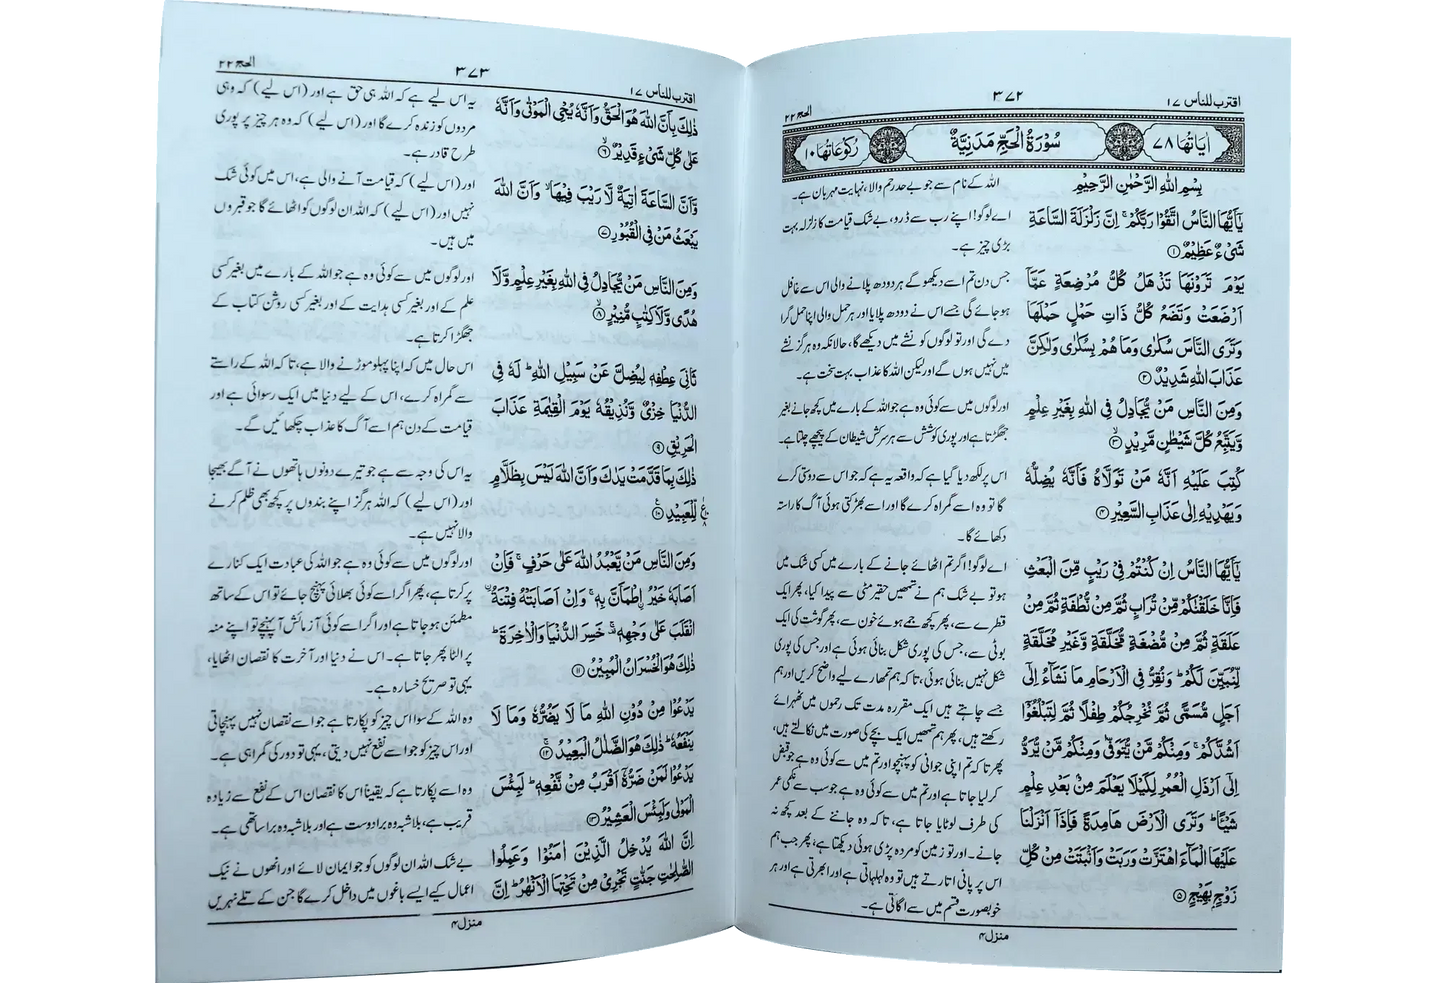 اقترب للناس ۱۷
۳۷۲
الحج ۲۲
اٰيَاتُهَا ۷۸
سُوْرَةُ الْحَجِّ مَدَنِيَّةٌ
رُكُوْعَاتُهَا ۱۰
بِسْمِ اللّٰهِ الرَّحْمٰنِ الرَّحِيْمِ
يٰٓاَيُّهَا النَّاسُ اتَّقُوْا رَبَّكُمْ ۚ اِنَّ زَلْزَلَةَ السَّاعَةِ
شَيْءٌ عَظِيْمٌ ۝۱
يَوْمَ تَرَوْنَهَا تَذْهَلُ كُلُّ مُرْضِعَةٍ عَمَّآ
اَرْضَعَتْ وَتَضَعُ كُلُّ ذَاتِ حَمْلٍ حَمْلَهَا
وَتَرَى النَّاسَ سُكٰرٰى وَمَا هُمْ بِسُكٰرٰى وَلٰكِنَّ
عَذَابَ اللّٰهِ شَدِيْدٌ ۝۲
وَمِنَ النَّاسِ مَنْ يُّجَادِلُ فِي اللّٰهِ بِغَيْرِ عِلْمٍ
وَّيَتَّبِعُ كُلَّ شَيْطٰنٍ مَّرِيْدٍ ۝۳
كُتِبَ عَلَيْهِ اَنَّهٗ مَنْ تَوَلَّاهُ فَاَنَّهٗ يُضِلُّهٗ
وَيَهْدِيْهِ اِلٰى عَذَابِ السَّعِيْرِ ۝۴
يٰٓاَيُّهَا النَّاسُ اِنْ كُنْتُمْ فِيْ رَيْبٍ مِّنَ الْبَعْثِ
فَاِنَّا خَلَقْنٰكُمْ مِّنْ تُرَابٍ ثُمَّ مِنْ نُّطْفَةٍ ثُمَّ مِنْ
عَلَقَةٍ ثُمَّ مِنْ مُّضْغَةٍ مُّخَلَّقَةٍ وَّغَيْرِ مُخَلَّقَةٍ
لِّنُبَيِّنَ لَكُمْ ؕ وَنُقِرُّ فِي الْاَرْحَامِ مَا نَشَآءُ اِلٰٓى
اَجَلٍ مُّسَمًّى ثُمَّ نُخْرِجُكُمْ طِفْلًا ثُمَّ لِتَبْلُغُوْٓا
اَشُدَّكُمْ ۚ وَمِنْكُمْ مَّنْ يُّتَوَفّٰى وَمِنْكُمْ مَّنْ يُّرَدُّ
اِلٰٓى اَرْذَلِ الْعُمُرِ لِكَيْلَا يَعْلَمَ مِنْۢ بَعْدِ عِلْمٍ
شَيْئًا ؕ وَتَرَى الْاَرْضَ هَامِدَةً فَاِذَآ اَنْزَلْنَا
عَلَيْهَا الْمَآءَ اهْتَزَّتْ وَرَبَتْ وَاَنْۢبَتَتْ مِنْ كُلِّ
زَوْجٍۢ بَهِيْجٍ ۝۵
اللہ کے نام سے جو بے حد رحم والا، نہایت مہربان ہے۔
اے لوگو! اپنے رب سے ڈرو، بے شک قیامت کا زلزلہ بہت
بڑی چیز ہے۔
جس دن تم اسے دیکھو گے ہر دودھ پلانے والی اس سے غافل
ہو جائے گی جسے اس نے دودھ پلایا اور ہر حمل والی اپنا حمل گرا
دے گی اور تو لوگوں کو نشے میں دیکھے گا، حالانکہ وہ ہرگز نشے
میں نہیں ہوں گے اور لیکن اللہ کا عذاب بہت سخت ہے۔
اور لوگوں میں سے کوئی وہ ہے جو اللہ کے بارے میں کچھ جانے بغیر
جھگڑتا ہے اور پوری کوشش سے ہر سرکش شیطان کے پیچھے چلتا ہے۔
اس پر لکھ دیا گیا ہے کہ واقعہ یہ ہے کہ جو اس سے دوستی کرے
گا تو وہ اسے گمراہ کرے گا اور اسے بھڑکتی ہوئی آگ کا راستہ
دکھائے گا۔
اے لوگو! اگر تم اٹھائے جانے کے بارے میں کسی شک میں
ہو تو بے شک ہم نے تمھیں حقیر مٹی سے پیدا کیا، پھر ایک
قطرے سے، پھر کچھ جمے ہوئے خون سے، پھر گوشت کی ایک
بوٹی سے، جس کی پوری شکل بنائی ہوئی ہے اور جس کی پوری
شکل نہیں بنائی ہوئی، تاکہ ہم تمھارے لیے واضح کریں اور ہم
جسے چاہتے ہیں ایک مقررہ مدت تک رحموں میں ٹھہرائے
رکھتے ہیں، پھر ہم تمھیں ایک بچے کی صورت میں نکالتے ہیں،
پھر تاکہ تم اپنی جوانی کو پہنچو اور تم میں سے کوئی وہ ہے جو قبض
کر لیا جاتا ہے اور تم میں سے کوئی وہ ہے جو سب سے نکمی عمر
کی طرف لوٹایا جاتا ہے، تاکہ وہ جاننے کے بعد کچھ نہ
جانے۔ اور تو زمین کو مردہ پڑی ہوئی دیکھتا ہے، پھر جب ہم
اس پر پانی اتارتے ہیں تو وہ لہلہاتی ہے اور ابھرتی ہے اور ہر
خوبصورت قسم میں سے اگاتی ہے۔
منزل ۴
اقترب للناس ۱۷
۳۷۳
الحج ۲۲
ذٰلِكَ بِاَنَّ اللّٰهَ هُوَ الْحَقُّ وَاَنَّهٗ يُحْيِ الْمَوْتٰى وَاَنَّهٗ
عَلٰى كُلِّ شَيْءٍ قَدِيْرٌ ۝۶
وَّاَنَّ السَّاعَةَ اٰتِيَةٌ لَّا رَيْبَ فِيْهَا ۙ وَاَنَّ اللّٰهَ
يَبْعَثُ مَنْ فِي الْقُبُوْرِ ۝۷
وَمِنَ النَّاسِ مَنْ يُّجَادِلُ فِي اللّٰهِ بِغَيْرِ عِلْمٍ وَّلَا
هُدًى وَّلَا كِتٰبٍ مُّنِيْرٍ ۝۸
ثَانِيَ عِطْفِهٖ لِيُضِلَّ عَنْ سَبِيْلِ اللّٰهِ ؕ لَهٗ فِي
الدُّنْيَا خِزْيٌ وَّنُذِيْقُهٗ يَوْمَ الْقِيٰمَةِ عَذَابَ
الْحَرِيْقِ ۝۹
ذٰلِكَ بِمَا قَدَّمَتْ يَدٰكَ وَاَنَّ اللّٰهَ لَيْسَ بِظَلَّامٍ
لِّلْعَبِيْدِ ۝۱۰
وَمِنَ النَّاسِ مَنْ يَّعْبُدُ اللّٰهَ عَلٰى حَرْفٍ ۚ فَاِنْ
اَصَابَهٗ خَيْرُ اِطْمَاَنَّ بِهٖ ۚ وَاِنْ اَصَابَتْهُ فِتْنَةُ
انْقَلَبَ عَلٰى وَجْهِهٖ ۚ خَسِرَ الدُّنْيَا وَالْاٰخِرَةَ ؕ
ذٰلِكَ هُوَ الْخُسْرَانُ الْمُبِيْنُ ۝۱۱
يَدْعُوْا مِنْ دُوْنِ اللّٰهِ مَا لَا يَضُرُّهٗ وَمَا لَا
يَنْفَعُهٗ ؕ ذٰلِكَ هُوَ الضَّلٰلُ الْبَعِيْدُ ۝۱۲
يَدْعُوْا لَمَنْ ضَرُّهٗٓ اَقْرَبُ مِنْ نَّفْعِهٖ ؕ لَبِئْسَ
الْمَوْلٰى وَلَبِئْسَ الْعَشِيْرُ ۝۱۳
اِنَّ اللّٰهَ يُدْخِلُ الَّذِيْنَ اٰمَنُوْا وَعَمِلُوا
الصّٰلِحٰتِ جَنّٰتٍ تَجْرِيْ مِنْ تَحْتِهَا الْاَنْهٰرُ ؕ اِنَّ
یہ اس لیے ہے کہ اللہ ہی حق ہے اور (اس لیے) کہ وہی
مردوں کو زندہ کرے گا اور (اس لیے) کہ وہ ہر چیز پر پوری
طرح قادر ہے۔
اور (اس لیے) کہ قیامت آنے والی ہے، اس میں کوئی شک
نہیں اور (اس لیے) کہ اللہ ان لوگوں کو اٹھائے گا جو قبروں
میں ہیں۔
اور لوگوں میں سے کوئی وہ ہے جو اللہ کے بارے میں بغیر کسی
علم کے اور بغیر کسی ہدایت کے اور بغیر کسی روشن کتاب کے
جھگڑا کرتا ہے۔
اس حال میں کہ اپنا پہلو موڑنے والا ہے، تاکہ اللہ کے راستے
سے گمراہ کرے، اس کے لیے دنیا میں ایک رسوائی ہے اور
قیامت کے دن ہم اسے آگ کا عذاب چکھائیں گے۔
یہ اس کی وجہ سے ہے جو تیرے دونوں ہاتھوں نے آگے بھیجا
اور (اس لیے) کہ اللہ ہرگز اپنے بندوں پر کچھ بھی ظلم کرنے
والا نہیں ہے۔
اور لوگوں میں سے کوئی وہ ہے جو اللہ کی عبادت ایک کنارے
پر کرتا ہے، پھر اگر اسے کوئی بھلائی پہنچ جائے تو اس کے ساتھ
مطمئن ہو جاتا ہے اور اگر اسے کوئی آزمائش آپہنچے تو اپنے منہ
پر الٹا پھر جاتا ہے۔ اس نے دنیا اور آخرت کا نقصان اٹھایا،
یہی تو صریح خسارہ ہے۔
وہ اللہ کے سوا اس چیز کو پکارتا ہے جو اسے نقصان نہیں پہنچاتی
اور اس چیز کو جو اسے نفع نہیں دیتی، یہی تو دور کی گمراہی ہے۔
وہ اسے پکارتا ہے کہ یقینا اس کا نقصان اس کے نفع سے زیادہ
قریب ہے، بلاشبہ وہ برا دوست ہے اور بلاشبہ وہ برا ساتھی ہے۔
بے شک اللہ ان لوگوں کو جو ایمان لائے اور انھوں نے نیک
اعمال کیے ایسے باغوں میں داخل کرے گا جن کے تلے نہریں
منزل ۴